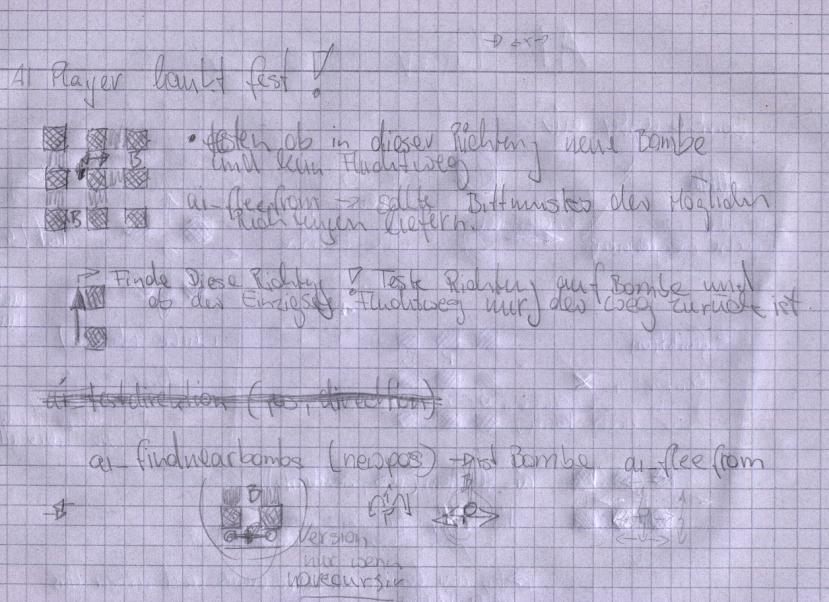 AI Player haukt fest!
• testen ob in dieser Richtung neue Bombe
und kein Fluchtweg
B
ai_fleefrom → sollte Bittmuster der Möglichen
Richtungen liefern.
B
Finde Diese Richtung! Teste Richtung auf Bombe und
ob der Einzigste Fluchtweg nur der Weg zurück ist.
ai_testdirektion (pos, direction)
ai_findnearbombs (newpos) → ist Bombe ai_fleefrom
B
Version
nur wenn
movecursir